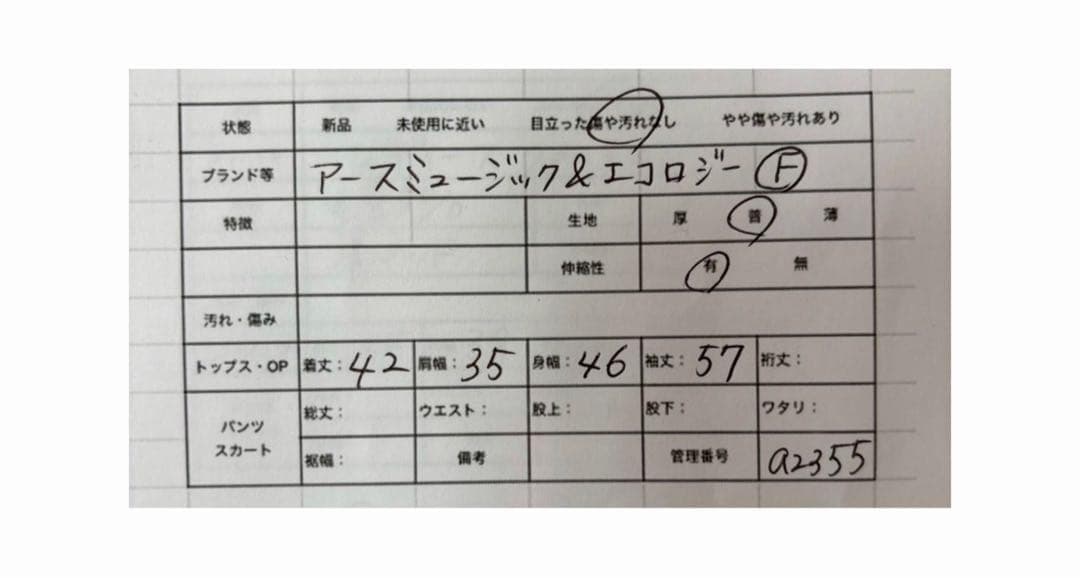 状態 新品 未使用に近い 目立った傷や汚れなし やや傷や汚れあり
ブランド等 アースミュージック&エコロジー F
特徴 生地 厚 普 薄
伸縮性 有 無
汚れ・傷み
トップス・OP 着丈：42 肩幅：35 身幅：46 袖丈：57 裄丈：
パンツ スカート 総丈： ウエスト： 股上： 股下： ワタリ：
裾幅： 備考 管理番号 a2355